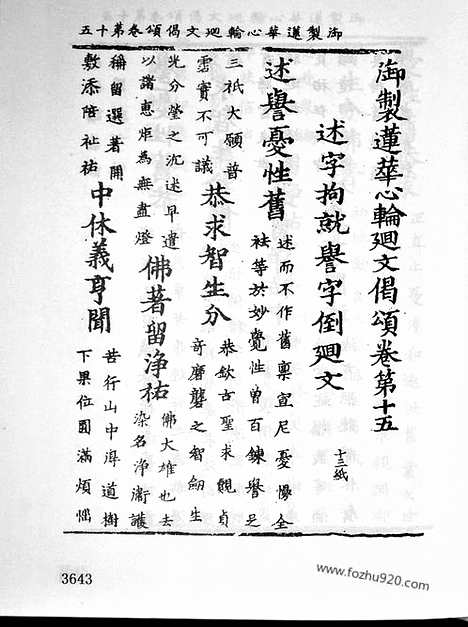 御製蓮華心輪廻文偈頌卷第十五
御製蓮華心輪廻文偈頌卷第十五
述字拘就譽字倒廻文 十三紙
述譽憂性舊
述而不作舊稟宣尼憂懮全
袪等於妙覺性曾百鍊譽足
三祇大願普
霑實不可議
恭求智生分
恭欽古聖求覩貞
奇磨礱之智劒生
光分瑩之沉迷早遣
以諸惠炬為無盡燈
佛著留淨祐
佛大雄也去
染名淨衛護
稱留選著開
敷添陪祉祐
中休義亨聞
苦行山中淂道樹
下果位圓滿煩惱
3643
www.fozhu920.com